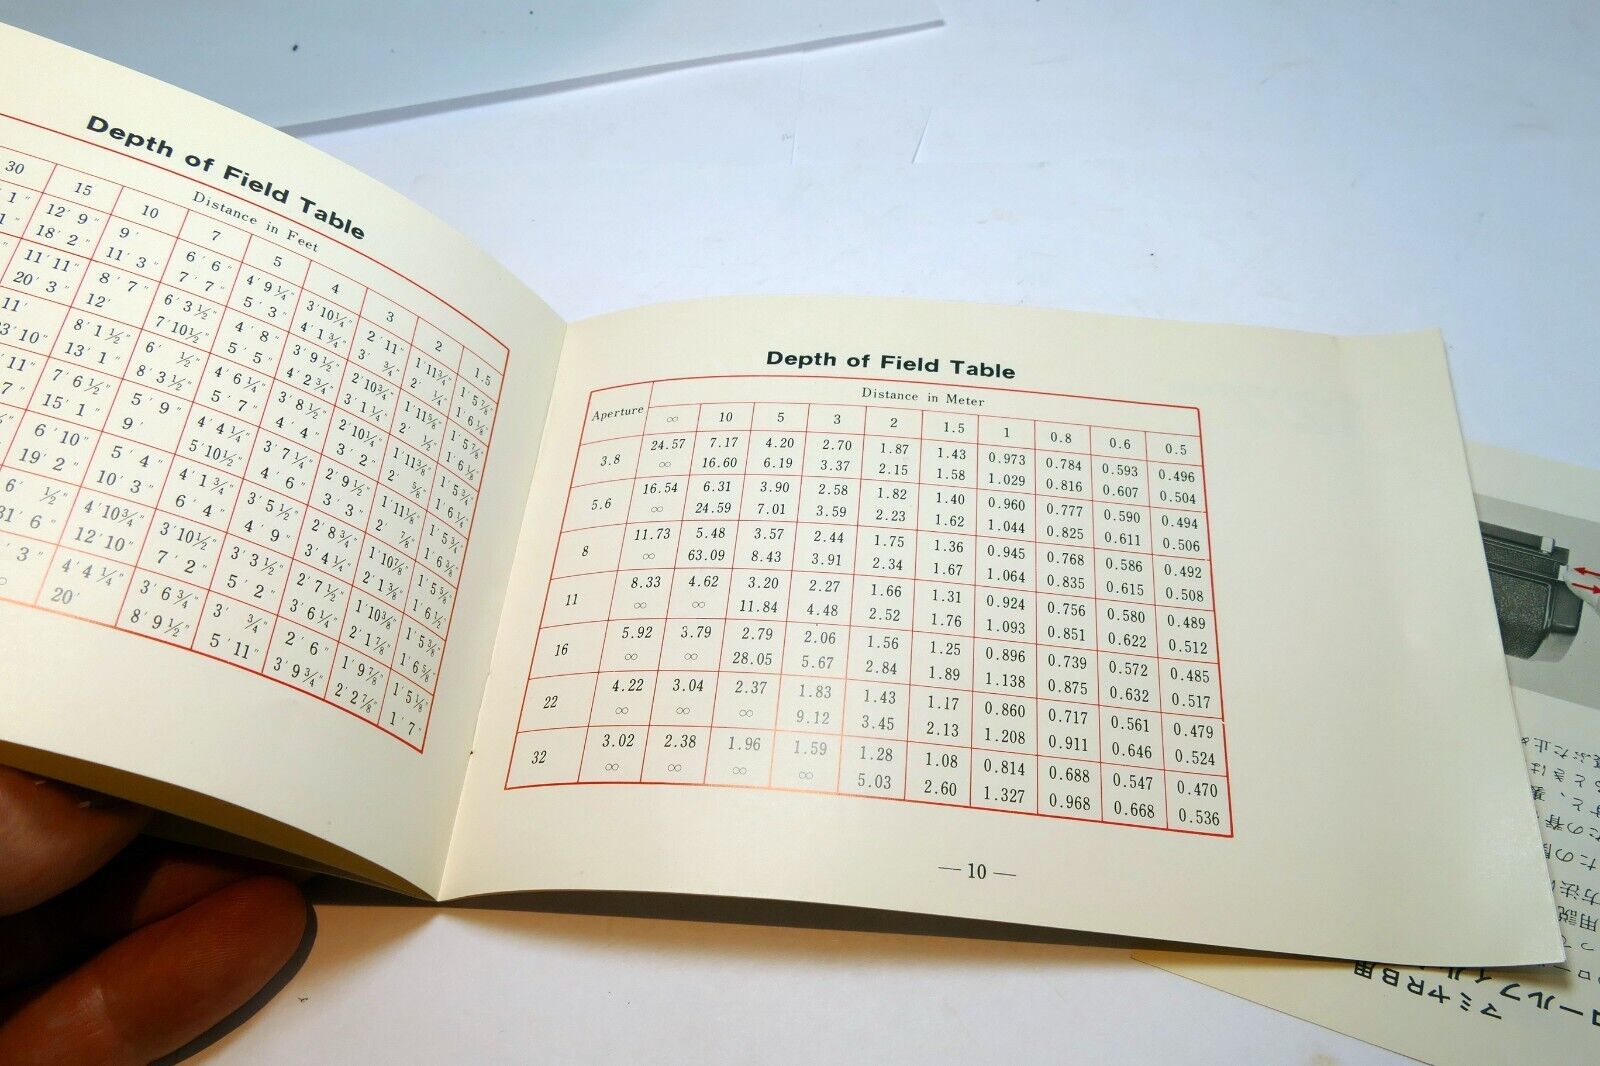 Depth of Field Table
Distance in Feet
30 15 10 7 5 4 3 2 1.5
1″ 12′ 9″ 9′ 6′ 6″ 4′ 9¼″ 3′10¼″ 2′11″ 1′11¾″ 1′5⅞″
1″ 18′ 2″ 11′ 3″ 7′ 7″ 5′ 3″ 4′1¾″ 3′ ¾″ 2′ ¼″ 1′6⅛″
11′11″ 8′ 7″ 6′3½″ 4′ 8″ 3′9½″ 2′10¾″ 1′11⅝″ 1′5⅞″
20′ 3″ 12′ 7′10½″ 5′ 5″ 4′2¾″ 3′1¼″ 2′ ½″ 1′6⅛″
11′ 8′1½″ 6′ ½″ 4′6¼″ 3′8½″ 2′10¼″ 1′11⅜″ 1′5¾″
23′10″ 13′ 1″ 8′3½″ 5′ 7″ 4′ 4″ 3′ 2″ 2′ ⅝″ 1′6¼″
11″ 7′6½″ 5′ 9″ 4′4¼″ 3′7¼″ 2′9½″ 1′11⅛″ 1′5¾″
7″ 15′ 1″ 9′ 5′10½″ 4′ 6″ 3′ 3″ 2′ ⅞″ 1′6⅜″
6′10″ 5′ 4″ 4′1¾″ 3′5½″ 2′8¾″ 1′10⅞″
19′ 2″ 10′ 3″ 6′ 4″ 4′ 9″ 3′4¼″ 2′1⅜″ 1′6½″
6′ ½″ 4′10¾″ 3′10½″ 3′3½″ 2′7½″ 1′10⅜″ 1′5⅜″
31′ 6″ 12′10″ 7′ 2″ 5′ 2″ 3′6¼″ 2′1⅞″ 1′6⅝″
3″ 4′4¼″ 3′6¾″ 3′ ¾″ 2′ 6″ 1′9⅞″ 1′5⅛″
∞ 20′ 8′9½″ 5′11″ 3′9¾″ 2′2⅞″ 1′7″
Depth of Field Table
Aperture Distance in Meter
∞ 10 5 3 2 1.5 1 0.8 0.6 0.5
3.8 24.57 7.17 4.20 2.70 1.87 1.43 0.973 0.784 0.593 0.496
∞ 16.60 6.19 3.37 2.15 1.58 1.029 0.816 0.607 0.504
5.6 16.54 6.31 3.90 2.58 1.82 1.40 0.960 0.777 0.590 0.494
∞ 24.59 7.01 3.59 2.23 1.62 1.044 0.825 0.611 0.506
8 11.73 5.48 3.57 2.44 1.75 1.36 0.945 0.768 0.586 0.492
∞ 63.09 8.43 3.91 2.34 1.67 1.064 0.835 0.615 0.508
11 8.33 4.62 3.20 2.27 1.66 1.31 0.924 0.756 0.580 0.489
∞ ∞ 11.84 4.48 2.52 1.76 1.093 0.851 0.622 0.512
16 5.92 3.79 2.79 2.06 1.56 1.25 0.896 0.739 0.572 0.485
∞ ∞ 28.05 5.67 2.84 1.89 1.138 0.875 0.632 0.517
22 4.22 3.04 2.37 1.83 1.43 1.17 0.860 0.717 0.561 0.479
∞ ∞ ∞ 9.12 3.45 2.13 1.208 0.911 0.646 0.524
32 3.02 2.38 1.96 1.59 1.28 1.08 0.814 0.688 0.547 0.470
∞ ∞ ∞ ∞ 5.03 2.60 1.327 0.968 0.668 0.536
— 10 —
マミヤRB用
ロールフィル